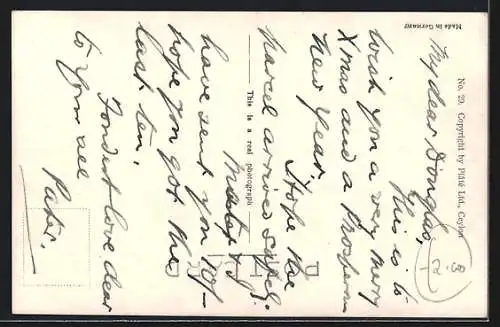 No. 29. Copyright by Plâté Ltd., Ceylon
Made in Germany
My dear Douglas,
This is to
wish you a very merry
Xmas and a Prosperous
New Year.
Hope the
parcel arrived safely.
This is a real photograph
Mater & I
have sent you 10/-
hope you got the
last ten.
Fondest love dear
to you all
Pater.